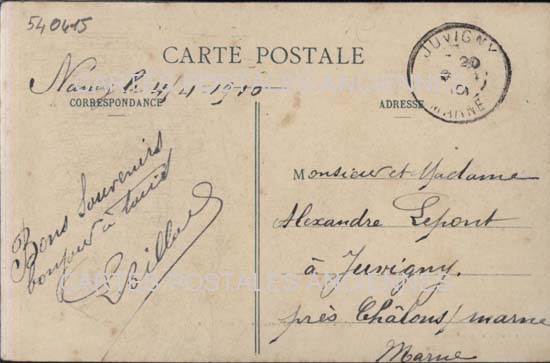 540415
CARTE POSTALE
Nancy le 4/4 1910
CORRESPONDANCE
ADRESSE
JUVIGNY
20
MARNE
Bons Souvenirs
bonjour à tous
Monsieur et Madame
Alexandre Lepont
à Juvigny
près Châlons/marne
Marne
CARTES POSTALES ANCIENNES
CARTES POSTALES ANCIENNES